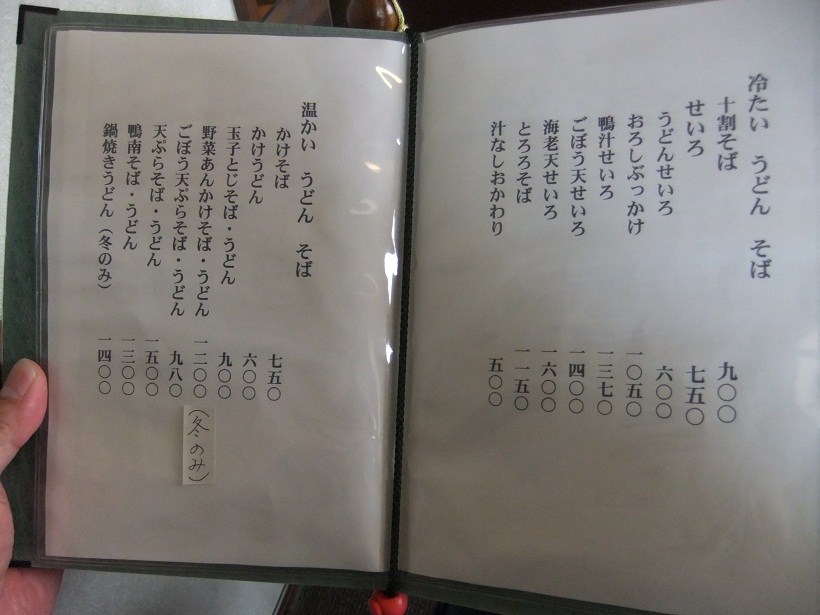 冷たい うどん そば
十割そば 九〇〇
せいろ 七五〇
うどんせいろ 六〇〇
おろしぶっかけ 一〇五〇
鴨汁せいろ 一三七〇
ごぼう天せいろ 一四〇〇
海老天せいろ 一六〇〇
とろろそば 一一五〇
汁なしおかわり 五〇〇
温かい うどん そば
かけそば 七五〇
かけうどん 六〇〇
玉子とじそば・うどん 九〇〇
野菜あんかけそば・うどん 一二〇〇 (冬のみ)
ごぼう天ぷらそば・うどん 九八〇
天ぷらそば・うどん 一五〇〇
鴨南そば・うどん 一三〇〇
鍋焼きうどん（冬のみ） 一四〇〇